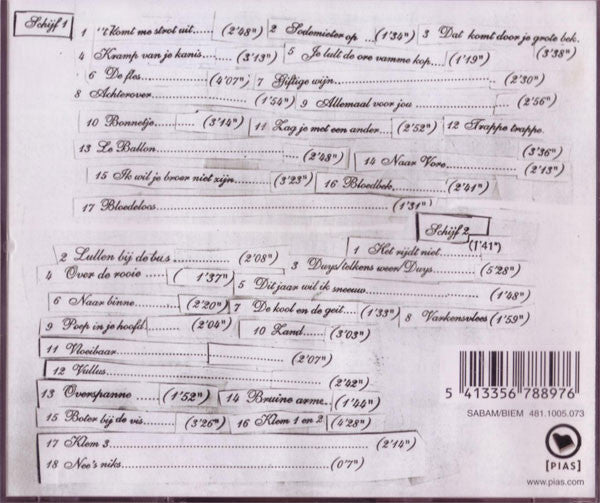 Schijf 1
1 't komt me strot uit.....(2'48") 2 Sodemieter op ...(1'34") 3 Dat komt door je grote bek.
(3'38")
4 Kramp van je kanis.......(3'13") 5 Je lult de ore vamme kop...(1'19")
6 De fles..............(4'07") 7 Giftige wijn..............................(2'30")
8 Achterover........................(1'54") 9 Allemaal voor jou.....................(2'56")
10 Bonnetje..............(3'14") 11 Zag je met een ander.....(2'52") 12 Trappe trappe.
(3'36")
13 Le Ballon.............................(2'48") 14 Naar Vore................(2'13")
15 Ik wil je broer niet zijn........(3'23") 16 Bloedbek...............(2'41")
17 Bloedeloos............................................(1'31")
Schijf 2
1 Het rijdt niet......(1'41")
2 Lullen bij de bus................(2'08") 3 Duys/telkens weer/Duys..........(5'28")
4 Over de rooie .........( 1'37") 5 Dit jaar wil ik sneeuw........................(1'48")
6 Naar binne.............(2'20") 7 De kool en de geit....(1'33") 8 Varkensvlees(1'59")
9 Poep in je hoofd..........(2'04") 10 Zand.................(3'03")
11 Vloeibaar.............................................(2'07")
12 Vullus.......................................................(2'42")
13 Overspanne.............(1'52") 14 Bruine arme...(1'44")
15 Boter bij de vis............(3'26") 16 Klem 1 en 2 (4'28")
17 Klem 3..........................................................(2'14")
18 Nee's niks.............................................(0'7")
5 413356 788976
SABAM/BIEM 481.1005.073
[PIAS]
www.pias.com